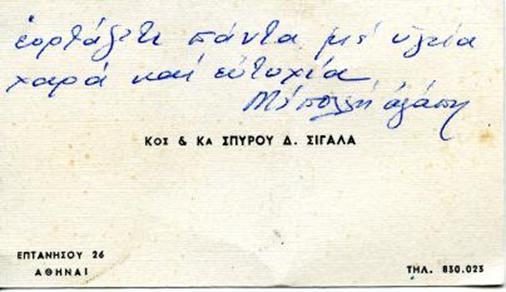 ἑορτάζετε πάντα μέ ὑγεία
χαρά καί εὐτυχία
Μέ πολλή ἀγάπη
ΚΟΣ & ΚΑ ΣΠΥΡΟΥ Δ. ΣΙΓΑΛΑ
ΕΠΤΑΝΗΣΟΥ 26
ΑΘΗΝΑΙ
ΤΗΛ. 830.023